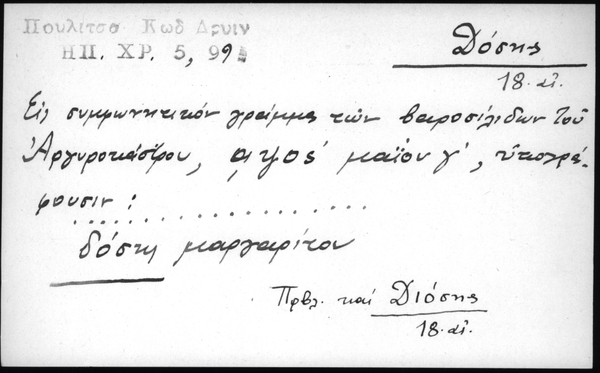 Πουλίτσα Κωδ Δρυιν
ΗΠ. ΧΡ. 5, 99
Δόσης
18. αἰ.
Εἰς συμφωνητικόν γράμμα τῶν βαροσλίδων τοῦ
Ἀργυροκάστρου, αψοϛ' μαΐου γ', ὑπογρά-
φουσιν : . . . . . . . . . . . . . . . . . .
δόστη μαργαρίτου
Πρβλ. καί Διόσης
18. αἰ.